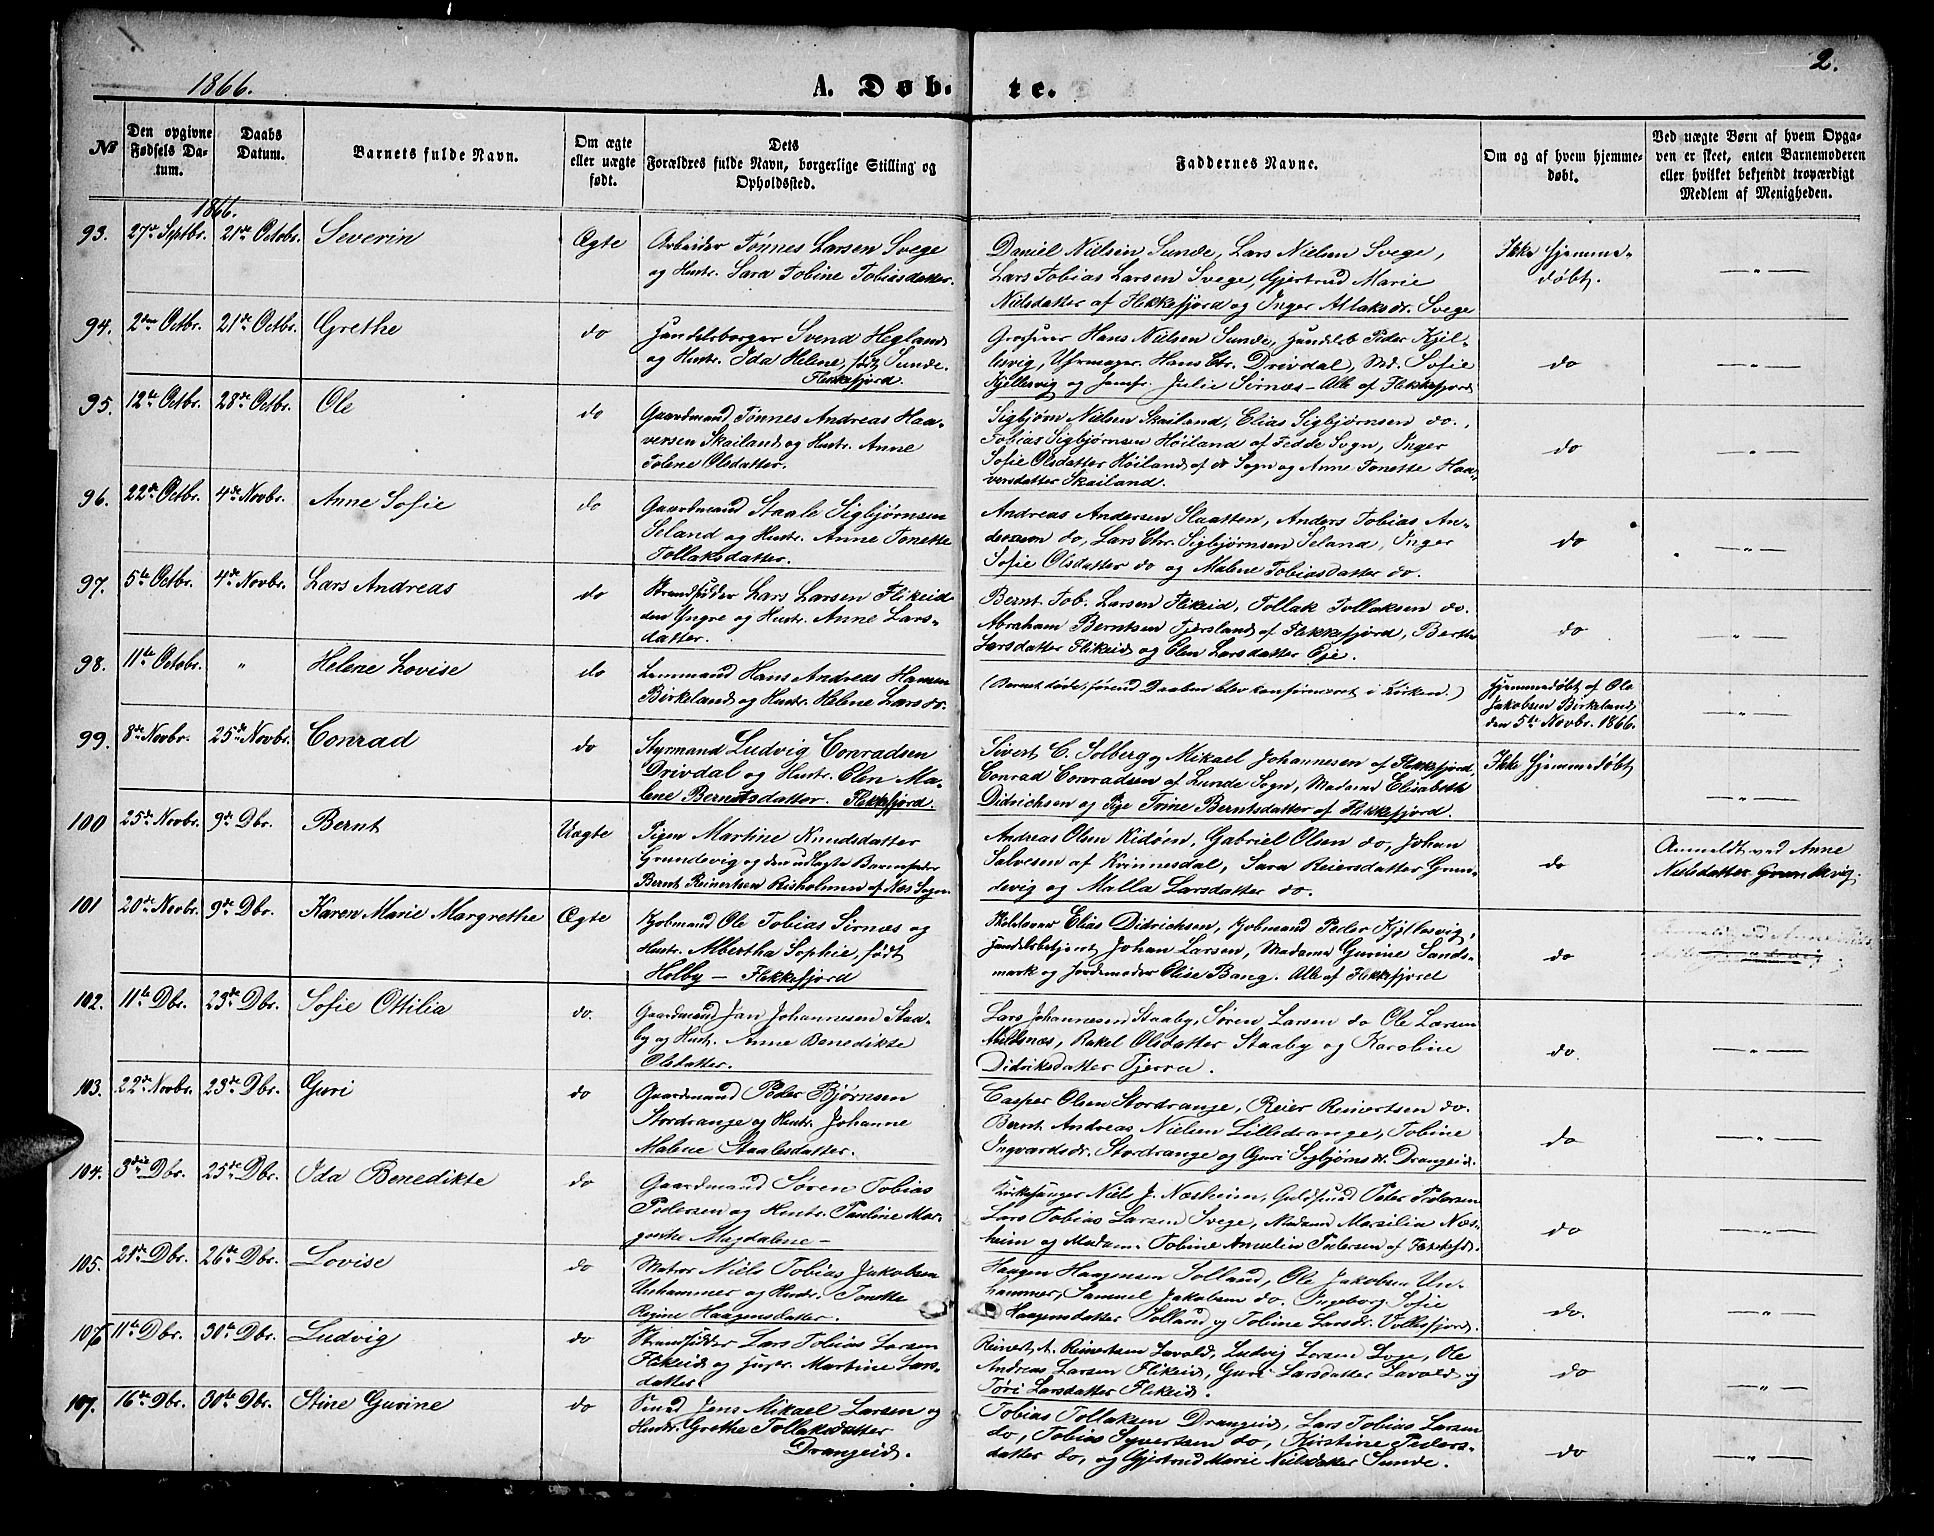 2.
1866.
A. Døb-
te.
№
Den opgivne Fødsels Datum.
Daabs Datum.
Barnets fulde Navn.
Om ægte eller uægte født.
Dets Forældres fulde Navn, borgerlige Stilling og Opholdssted.
Faddernes Navne.
Om og af hvem hjemmedøbt.
Ved uægte Børn af hvem Opgaven er skeet, enten Barnemoderen eller hvilket bekjendt troværdigt Medlem af Menigheden.
1866.
93. 27de Septbr. 21de Octobr. Severin Ægte
Arbeider Tønnes Larsen Svege
og Hustr. Sara Tobine Tobiasdatter.
Daniel Nielsen Sunde, Lars Nielsen Svege,
Lars Tobias Larsen Svege, Gjertrud Marie
Nilsdatter af Flekkefjord og Inger Atlaksdr. Svege
Ikke hjemme-
døbt.
— „ —
94. 2den Octbr. 21de Octbr. Grethe do
Handelsborger Svend Hegland
og Hustr. Ida Helene, født Sunde.
Flekkefjord.
Grosserer Hans Nielsen Sunde, Handelsb Peder Kjel-
lesvig, Uhrmager Hans Chr. Drivdal, Md. Sofie
Kjellesvig og Jomfr. Julie Sirnæs – Alle af Flekkefjord
do
— „ —
95. 12te Octbr. 28de Octbr. Ole do
Gaardmand Tønnes Andreas Haa-
versen Skailand og Hustr. Anne
Tolene Olsdatter.
Sigbjørn Nielsen Skailand, Elias Sigbjørnsen do.,
Tobias Sigbjørnsen Høiland af Fedde Sogn, Inger
Sofie Olsdatter Høiland af do Sogn og Anne Tonette Haa-
versdatter Skailand.
do
— „ —
96. 22de Octbr. 4de Novbr. Anne Sofie do
Gaardmand Staale Sigbjørnsen
Seland og Hustr. Anne Tonette
Tollaksdatter.
Andreas Andersen Slaatten, Anders Tobias An-
dersen do, Lars Chr. Sigbjørnsen Seland, Inger
Sofie Olsdatter do og Malene Tobiasdatter do.
do
— „ —
97. 5te Octbr. 4de Novbr. Lars Andreas do
Strandsidder Lars Larsen Flikeid
den Yngre og Hustr. Anne Lars-
datter.
Bernt Tob. Larsen Flikeid, Tollak Tollaksen do.
Abraham Berntsen Tjersland af Flekkefjord, Berthe
Larsdatter Flikeid og Elen Larsdatter Eje.
do
— „ —
98. 11te Octobr. „ Helene Lovise do
Lensmand Hans Andreas Hansen
Birkeland og Hustr. Helene Larsdr.
(Barnet døde, førend Daaben blev konfirmeret i Kirken.)
Hjemmedøbt af Ole
Jakobsen Birkeland,
den 5te Novbr. 1866.
— „ —
99. 8de Novbr. 25de Novbr. Conrad do
Styrmand Ludvig Conradsen
Drivdal og Hustr. Elen Ma-
lene Berntsdatter. Flekkefjord.
Sivert C. Solberg og Mikael Johannesen af Flekkefjord,
Conrad Conradsen af Lunde Sogn, Madame Elisabeth
Didrichsen og Pige Trine Berntsdatter af Flekkefjord.
Ikke hjemmedøbt
— „ —
100 25de Novbr. 9de Dbr. Bernt Uægte
Pigen Martine Knudsdatter
Grundevig og den udlagte Barnefader
Bernt Reinertsen Risholmen af Næs Sogn
Andreas Olsen Eidsøen, Gabriel Olsen do, Johan
Salvesen af Kvinnesdal, Sara Reiersdatter Grun-
devig og Malla Larsdatter do.
do
Anmeldt ved Anne
Nilsdatter Grundevig.
101 20de Novbr. 9de Dbr. Karen Marie Margrethe Ægte
Kjøbmand Ole Tobias Sirnæs og
Hustr. Albertha Sophie, født
Holby – Flekkefjord
Skolelærer Elias Didrichsen, Kjøbmand Peder Kjellesvig,
Handelsbetjent Johan Larsen, Madame Gurine Sands-
mark og Jordemoder Elise Bang. Alle af Flekkefjord
do
102. 11te Dbr. 23de Dbr. Sofie Ottilia do.
Gaardmand Jan Johannesen Staa-
by og Hustr. Anne Benedikte
Olsdatter.
Lars Johannesen Staaby, Søren Larsen do Ole Larsen
Abildsnæs, Rakel Olsdatter Staaby og Karoline
Didriksdatter Tjerra.
do.
— „ —
103. 22de Novbr. 23de Dbr. Guri do
Gaardmand Peder Bjørnsen
Stordrange og Hustr. Johanne
Malene Staalesdatter.
Casper Olsen Stordrange, Reier Reinertsen do.
Bernt Andreas Nielsen Lilledrange, Tobine
Ingvardsdr. Stordrange og Guri Sigbjørnsdr. Drangeid.
do
— „ —
104. 3die Dbr. 25de Dbr. Ida Benedikte do
Gaardmand Søren Tobias
Pedersen og Hustr. Pauline Mar-
grethe Magdalene –
Kirkesanger Niels J. Næsheim, Guldsmed Peter Pedersen
Lars Tobias Larsen Svege, Madam Marsilia Næs-
heim og Madam. Tobine Amalia Pedersen af Flekkefd.
do
— „ —
105. 21de Dbr. 26de Dbr. Lovise do
Matros Niels Tobias Jakobsen
Urshammer og Hustr. Tonette
Regine Haagensdatter.
Haagen Haagensen Solland, Ole Jakobsen Urs-
hammer, Samuel Jakobsen do. Ingeborg Sofie
Haagensdatter Solland og Tobine Larsdr. Vollesfjord.
do.
— „ —
106 11te Dbr. 30te Dbr. Ludvig do
Strandsidder Lars Tobias Larsen
Flikeid og Hustr. Martine Lars-
datter.
Reinert A. Reinertsen Lavold, Ludvig Larsen Loge, Ole
Andreas Larsen Flikeid, Guri Larsdatter Lavold og
Tøri Larsdatter Flikeid.
do
— „ —
107. 16de Dbr. 30te Dbr. Stine Gurine do
Smed Jens Mikael Larsen og
Hustr. Grethe Tollaksdatter
Drangeid.
Tobias Tollaksen Drangeid, Lars Tobias Larsen
do, Tobias Syvertsen do, Kirstine Peders-
datter do, og Gjertrud Marie Nielsdatter Sunde.
do
— „ —